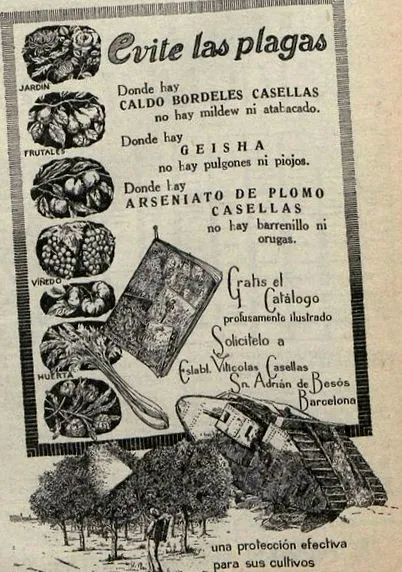 Evite las plagas
JARDIN
Donde hay
CALDO BORDELES CASELLAS
no hay mildew ni atabacado.
FRUTALES
Donde hay
GEISHA
no hay pulgones ni piojos.
Donde hay
ARSENIATO DE PLOMO
CASELLAS
no hay barrenillo ni
orugas.
VIÑEDO
Gratis el
Catálogo
profusamente ilustrado
Solicítelo a
Establ. Vitícolas Casellas
Sn. Adrián de Besós
Barcelona
HUERTA
una protección efectiva
para sus cultivos